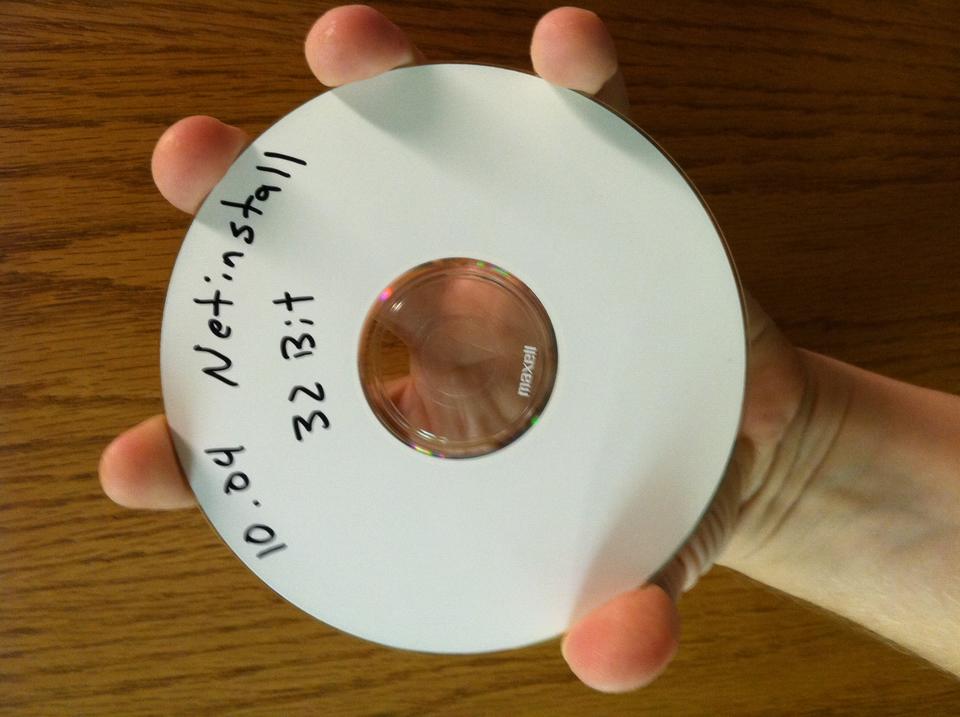 10.04 Netinstall
32 Bit
maxell